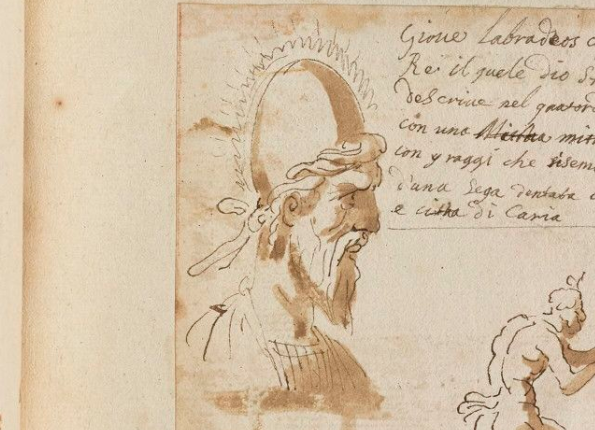 Gioue Labradeos
Re il quele dio
descriue nel
con una mit
con y raggi che
d'una sega dentata
e citta di Caria